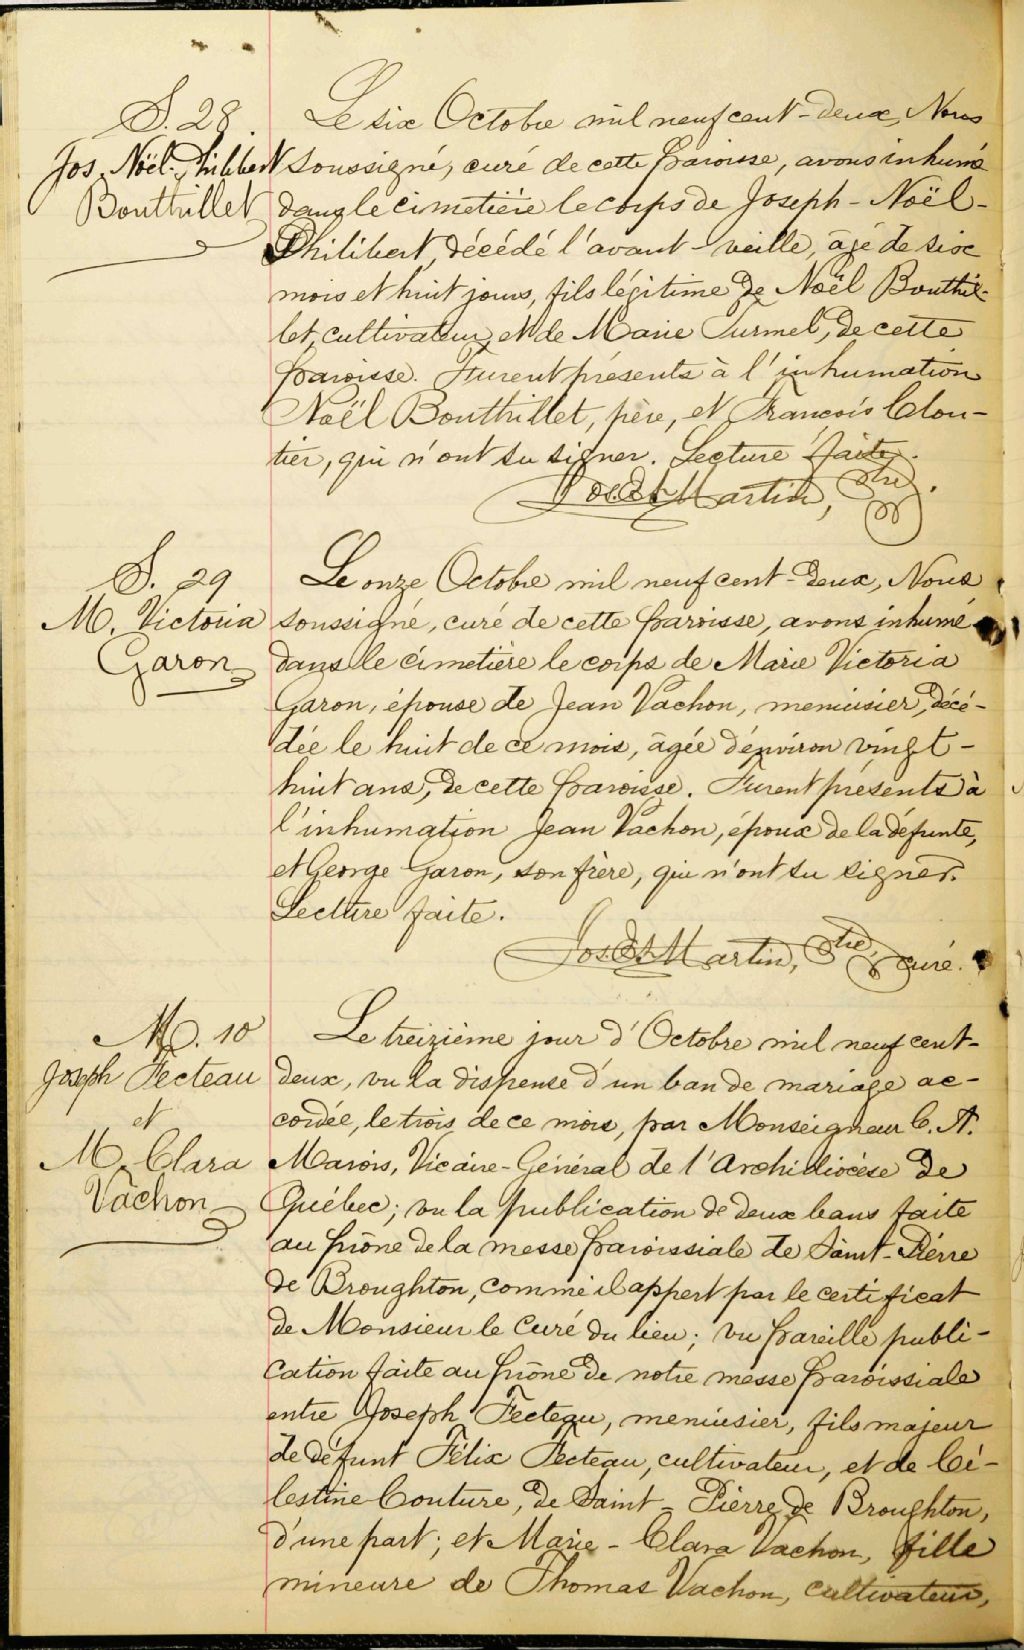 S. 28.
Jos. Noël-Philibert
Bouthillet
Le six Octobre mil neuf cent-deux, Nous
soussigné, curé de cette paroisse, avons inhumé
dans le cimetière le corps de Joseph-Noël-
Philibert, décédé l'avant-veille, âgé de six
mois et huit jours, fils légitime de Noël Bouthil-
let, cultivateur, et de Marie Turmel, de cette
paroisse. Furent présents à l'inhumation
Noël Bouthillet, père, et François Clou-
tier, qui n'ont su signer. Lecture faite.
Martin, Ptre.
S. 29
M. Victoria
Garon
Le onze Octobre mil neuf cent-deux, Nous
soussigné, curé de cette paroisse, avons inhumé
dans le cimetière le corps de Marie Victoria
Garon, épouse de Jean Vachon, menuisier, décé-
dée le huit de ce mois, âgée d'environ vingt-
huit ans, de cette paroisse. Furent présents à
l'inhumation Jean Vachon, époux de la défunte,
et George Garon, son frère, qui n'ont su signer.
Lecture faite.
Martin, Ptre, curé.
M. 10
Joseph Fecteau
et
M. Clara
Vachon
Le treizième jour d'Octobre mil neuf cent-
deux, vu la dispense d'un ban de mariage ac-
cordée, le trois de ce mois, par Monseigneur C. A.
Marois, Vicaire-Général de l'Archidiocèse de
Québec; vu la publication de deux bans faite
au prône de la messe paroissiale de Saint-Pierre
de Broughton, comme il appert par le certificat
de Monsieur le Curé du lieu; vu pareille publi-
cation faite au prône de notre messe paroissiale
entre Joseph Fecteau, menuisier, fils majeur
de défunt Félix Fecteau, cultivateur, et de Cé-
lestine Couture, de Saint-Pierre de Broughton,
d'une part; et Marie-Clara Vachon, fille
mineure de Thomas Vachon, cultivateur,